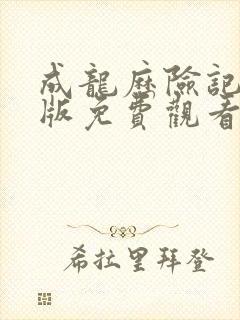 成龍歷險記
版免費觀看
希拉里拜登